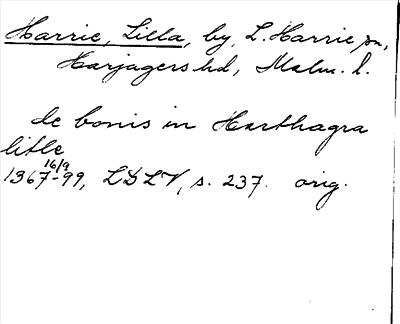 Harrie, Lilla, by, L. Harrie sn,
Harjagers hd, Malm. l.
de bonis in Harthagra
litle
16/9
1367-99, LDLV, s. 237. orig.